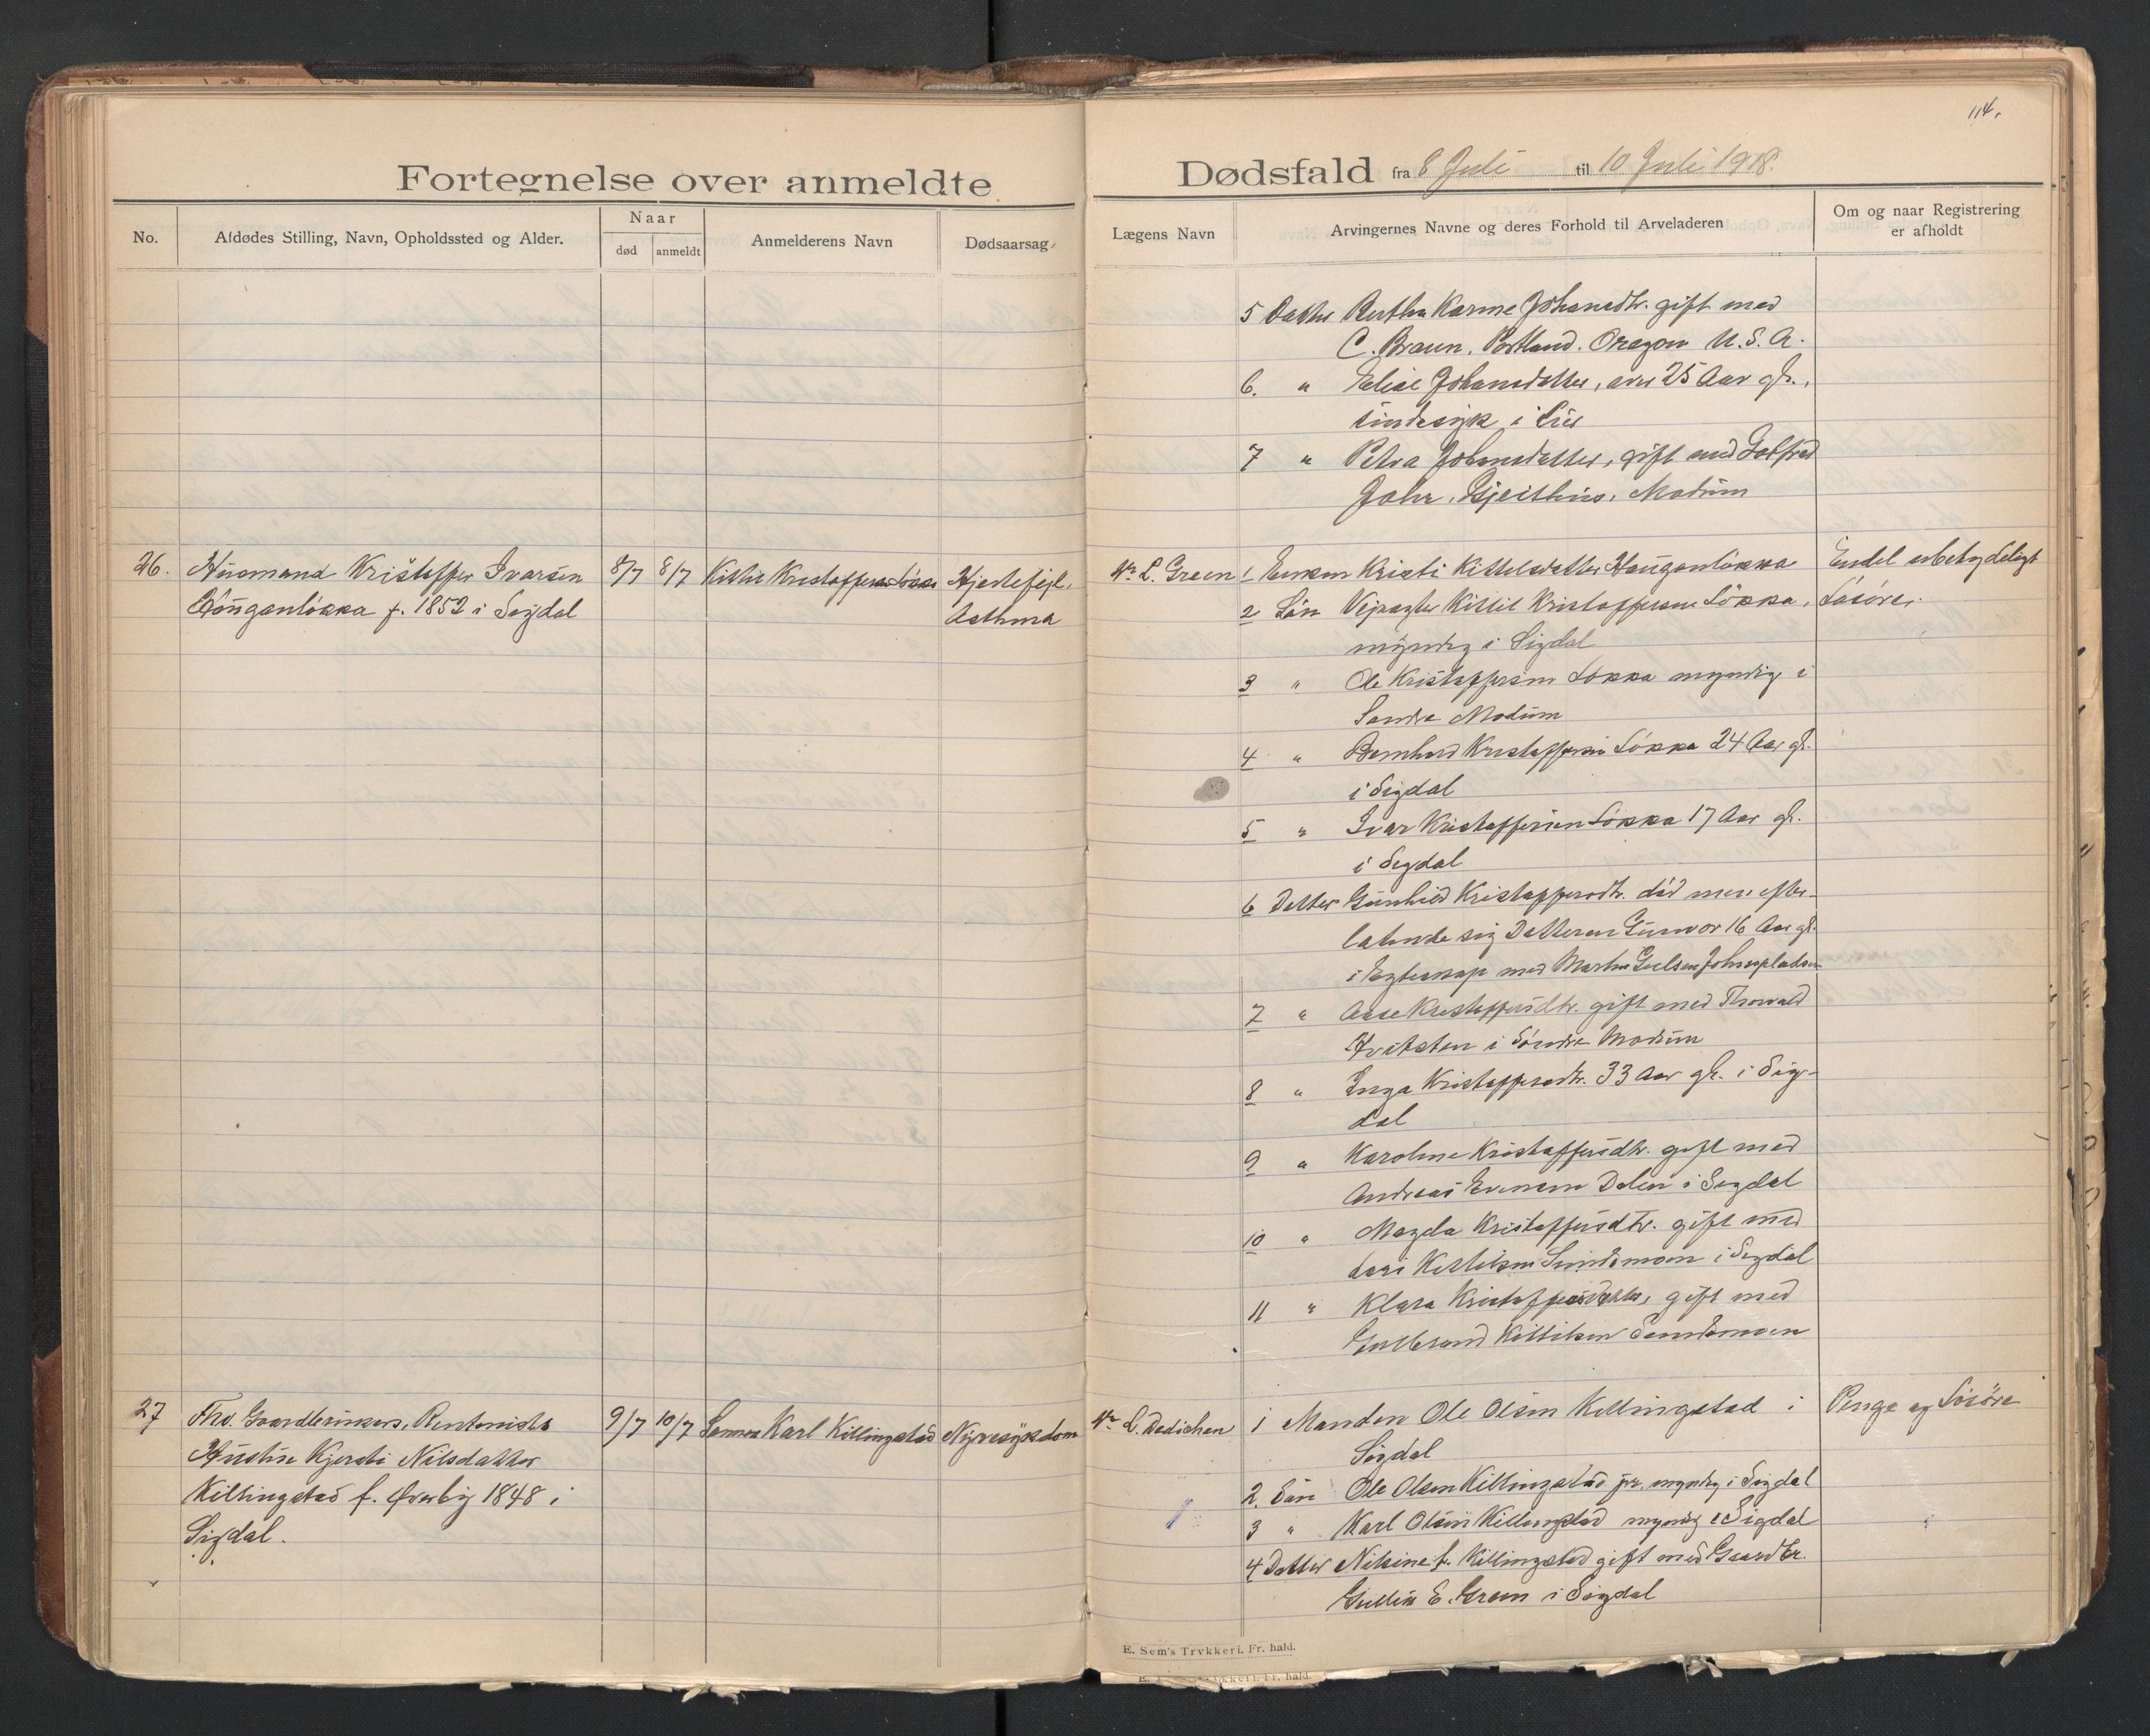 114.
Fortegnelse over anmeldte
Dødsfald fra 8 Juli til 10 Juli 1918.
No.
Afdødes Stilling, Navn, Opholdssted og Alder.
Naar
død
anmeldt
Anmelderens Navn
Dødsaarsag
Lægens Navn
Arvingernes Navne og deres Forhold til Arveladeren
Om og naar Registrering
er afholdt
5 Datter Bertha Karine Johansdtr. gift med
C. Braun, Portland. Oregon U.S.A.
6. " Elise Johansdatter, over 25 Aar gl.,
sindssyk i Lier
7 " Petra Johansdatter, gift med
Gjeithus, Modum
26. Husmand Kristoffer Ivarsen
Hauganløkka f. 1852 i Sigdal
8/7 8/7 Kittil Kristoffersen Løkka
Hjertefejl.
Asthma
L. Green
1 Enken Kristi Kittelsdatter Hauganløkka
2 Søn Vejvogter Kittil Kristoffersen Løkka,
myndig i Sigdal
3 " Ole Kristoffersen Løkka myndig i
Søndre Modum
4 " Bernhard Kristoffersen Løkka 24 Aar gl.
i Sigdal
5 " Ivar Kristoffersen Løkka 17 Aar gl.
i Sigdal
6 Datter Gunhild Kristoffersdtr. død men efter-
latende sig Datteren Gunvor 16 Aar gl.
i Egteskap med Martin
7 " Aase Kristoffersdtr. gift med Thorvald
Hvitsten i Søndre Modum
8 " Inga Kristoffersdtr. 33 Aar gl. i Sig-
dal
9 " Karoline Kristoffersdtr. gift med
Andreas Evensen Dalen i Sigdal
10 " Magda Kristoffersdtr. gift med
Lars Kittilsen Sundsmoen i Sigdal
11 " Klara Kristoffersdatter, gift med
Gulbrand Kittilsen Sundsmoen
Endel ubetydeligt
Løsøre.
27 Fhv. Gaardbrukers, Rentenists
Hustru Kjersti Nilsdatter
Killingstad f. Øverby 1848 i
Sigdal.
9/7 10/7 Sønnen Karl Killingstad
Nyresygdom
L. Dedichen
1 Manden Ole Olsen Killingstad i
Sigdal
2. Søn Ole Olsen Killingstad jr. myndig i Sigdal
3 " Karl Olsen Killingstad myndig i Sigdal
4 Datter Nilsine f. Killingstad gift med Gaardbr.
Gullik E. Green i Sigdal
Penge og Løsøre
E. Sem's Trykkeri. Fr. hald.